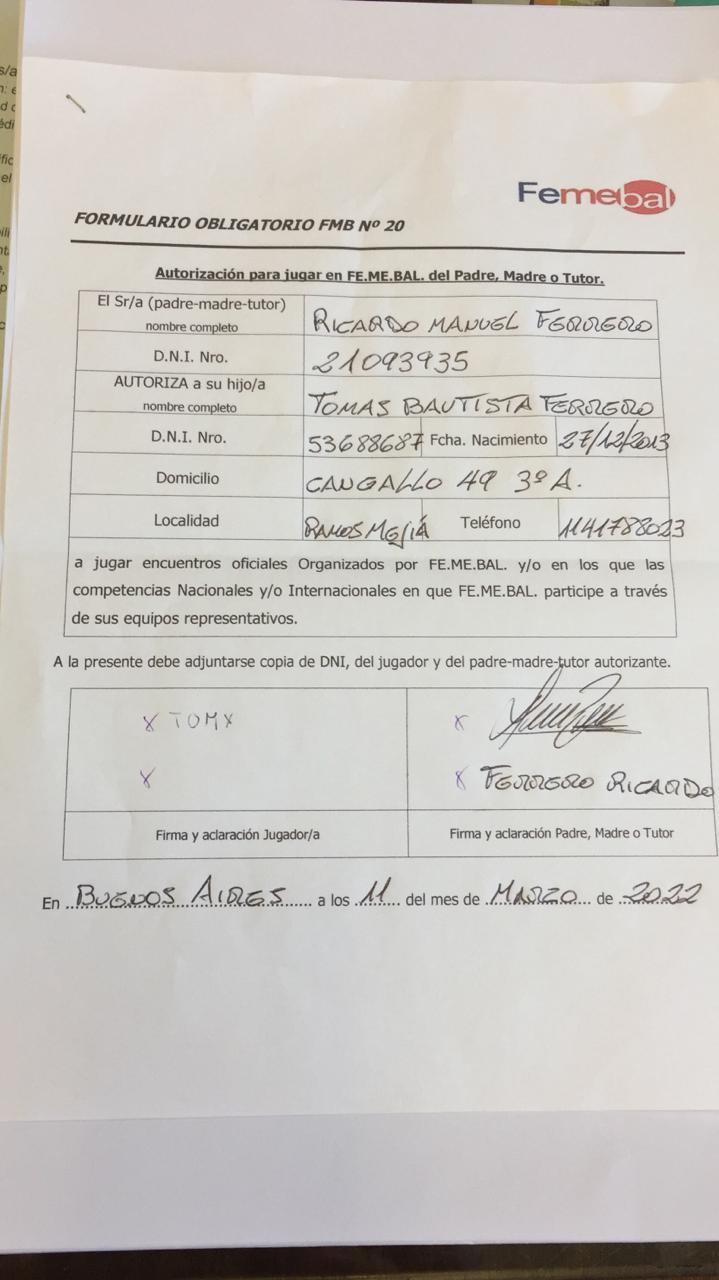 s/a
d c
édi
fic
el
Femebal
FORMULARIO OBLIGATORIO FMB Nº 20
Autorización para jugar en FE.ME.BAL. del Padre, Madre o Tutor.
El Sr/a (padre-madre-tutor) nombre completo RICARDO MANUEL FERRERO
D.N.I. Nro. 21093935
AUTORIZA a su hijo/a nombre completo TOMAS BAUTISTA FERRERO
D.N.I. Nro. 53688687 Fcha. Nacimiento 27/12/2013
Domicilio CANGALLO 49 3º A.
Localidad RAMOS MEJIÁ Teléfono 1141788023
a jugar encuentros oficiales Organizados por FE.ME.BAL. y/o en los que las
competencias Nacionales y/o Internacionales en que FE.ME.BAL. participe a través
de sus equipos representativos.
A la presente debe adjuntarse copia de DNI, del jugador y del padre-madre-tutor autorizante.
x TOMX x
x x FERRERO RICARDO
Firma y aclaración Jugador/a Firma y aclaración Padre, Madre o Tutor
En BUENOS AIRES a los 11 del mes de MARZO de 2022